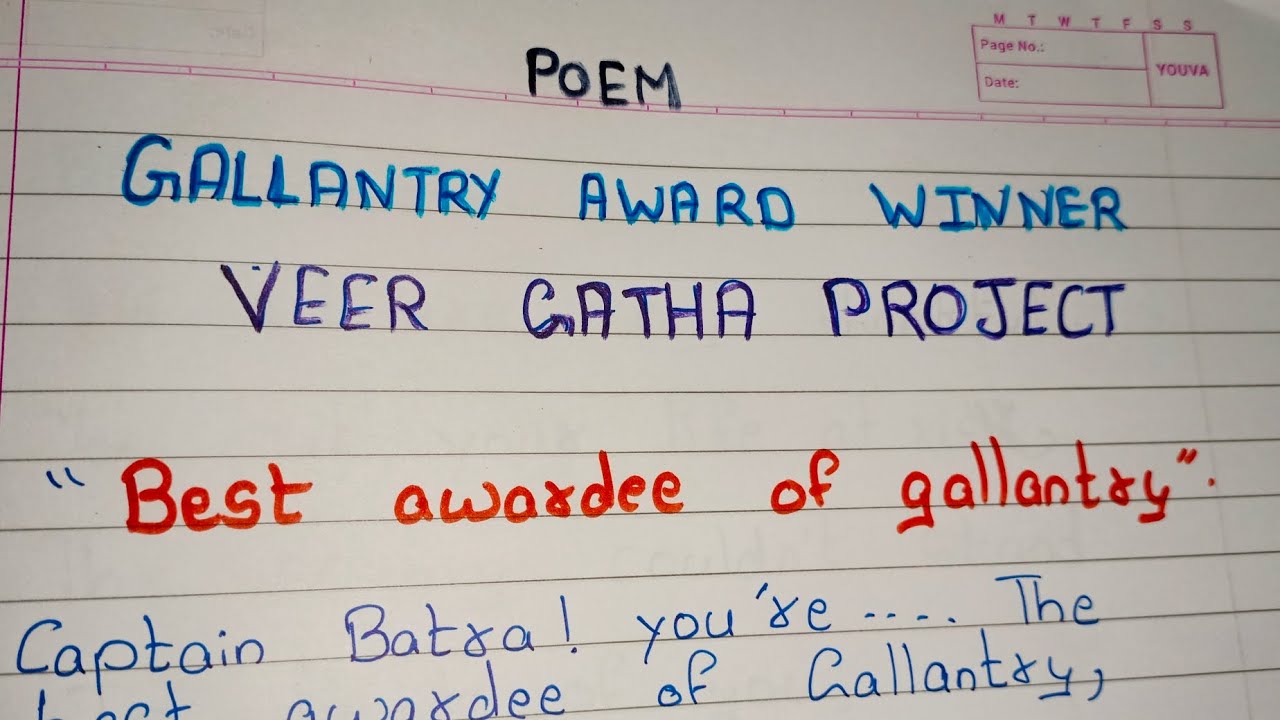 M T W T F S S
Page No.:
YOUVA
Date:
POEM
GALLANTRY AWARD WINNER
VEER GATHA PROJECT
"Best awardee of gallantry".
Captain Batra! you're .... The
best awardee of Gallantry,